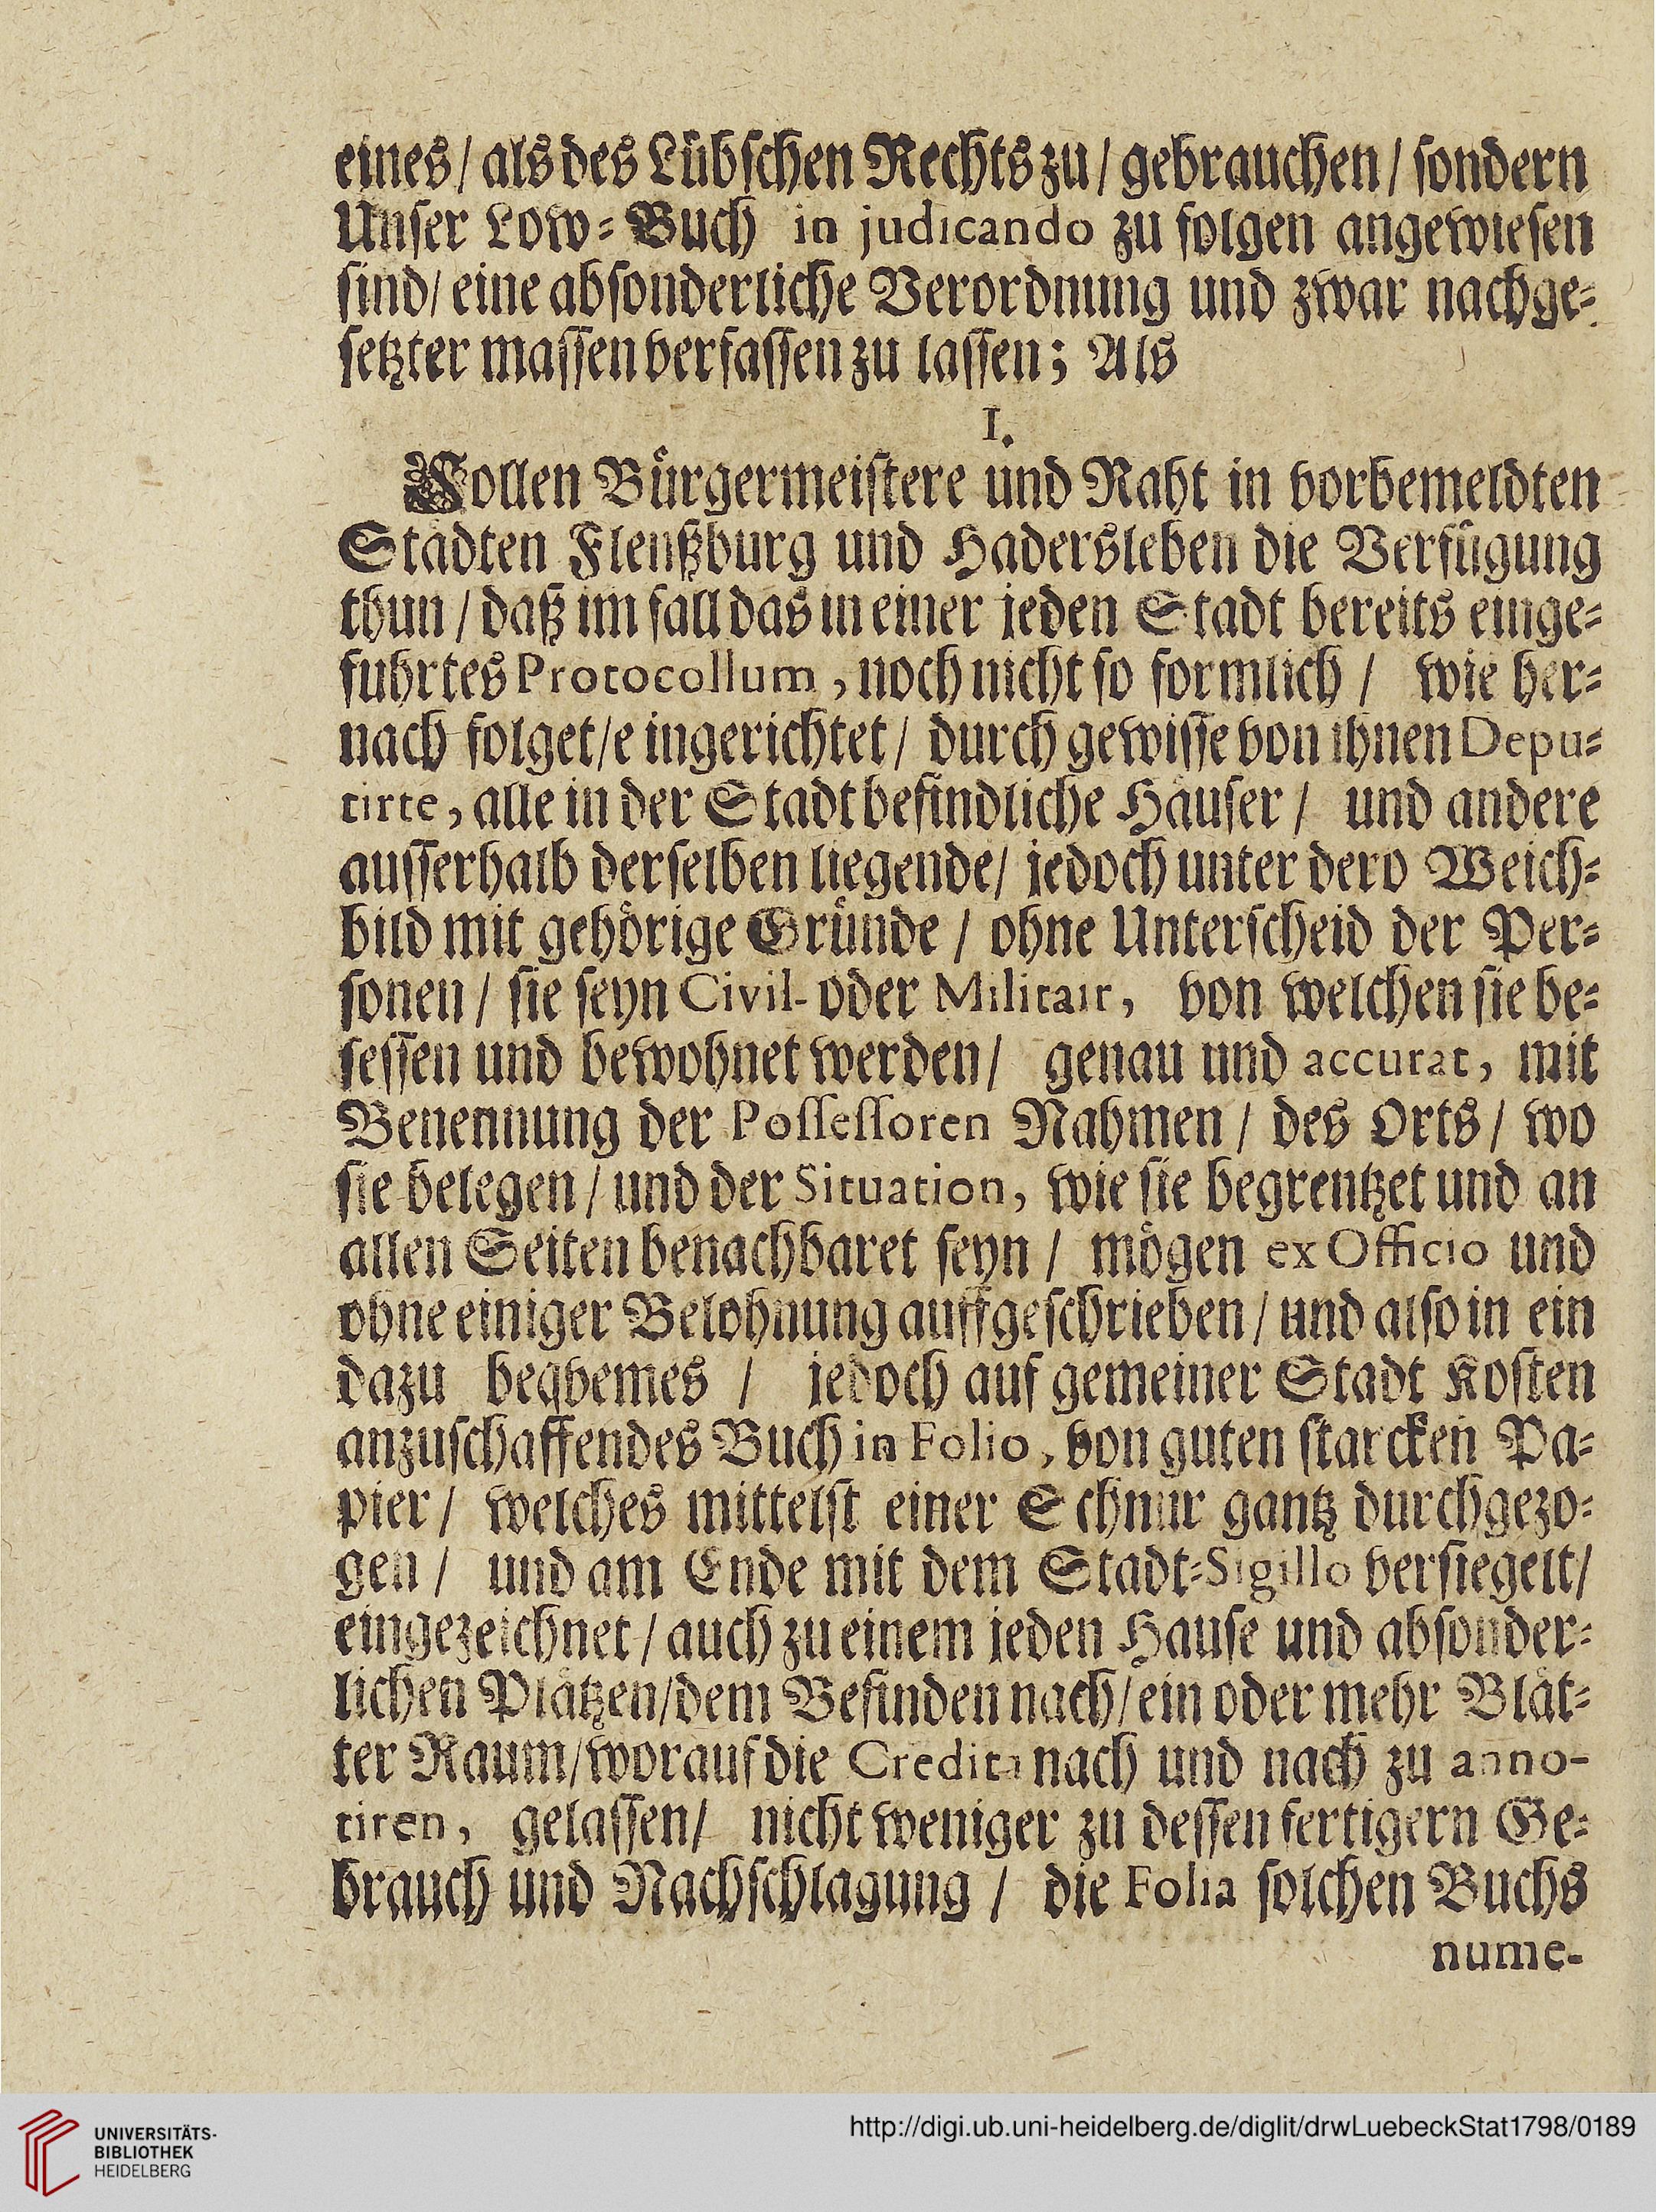 eines/ als des Lübschen Rechts zu/ gebrauchen/ sondern
Unser Low-Buch in judicando zu folgen angewiesen
sind/ eine absonderliche Verordnung und zwar nachge-
setzter massen verfassen zu lassen; Als
I.
Wollen Bürgermeistere und Raht in vorbemeldten
Städten Flenßburg und Hadersleben die Verfügung
thun/ daß im fall das in einer jeden Stadt bereits einge-
fuhrtes Protocollum, noch nicht so formlich/ wie her-
nach folget/e ingerichtet/ durch gewisse von ihnen Depu-
tirte, alle in der Stadt befindliche Häuser/ und andere
ausserhalb derselben liegende/ jedoch unter dero Weich-
bild mit gehörige Gründe/ ohne Unterscheid der Per-
sonen/ sie seyn Civil- oder Militair, von welchen sie be-
sessen und bewohnet werden/ genau und accurat, mit
Benennung der Possessoren Nahmen/ des Orts/ wo
sie belegen/ und der Situation, wie sie begrentzet und an
allen Seiten benachbaret seyn/ mögen ex Officio und
ohne einiger Belohnung auffgeschrieben/ und also in ein
dazu beqvemes/ jedoch auf gemeiner Stadt Kosten
anzuschaffendes Buch in Folio, von guten starcken Pa-
pier/ welches mittelst einer Schnur gantz durchgezo-
gen/ und am Ende mit dem Stadt-Sigillo versiegelt/
eingezeichnet/ auch zu einem jeden Hause und absonder-
lichen Plätzen/dem Befinden nach/ein oder mehr Blät-
ter Raum/worauf die Credita nach und nach zu anno-
tiren, gelassen/ nicht weniger zu dessen fertigern Ge-
brauch und Nachschlagung/ die Folia solchen Buchs
nume-
UNIVERSITÄTS-
BIBLIOTHEK
HEIDELBERG
http://digi.ub.uni-heidelberg.de/diglit/drwLuebeckStat1798/0189